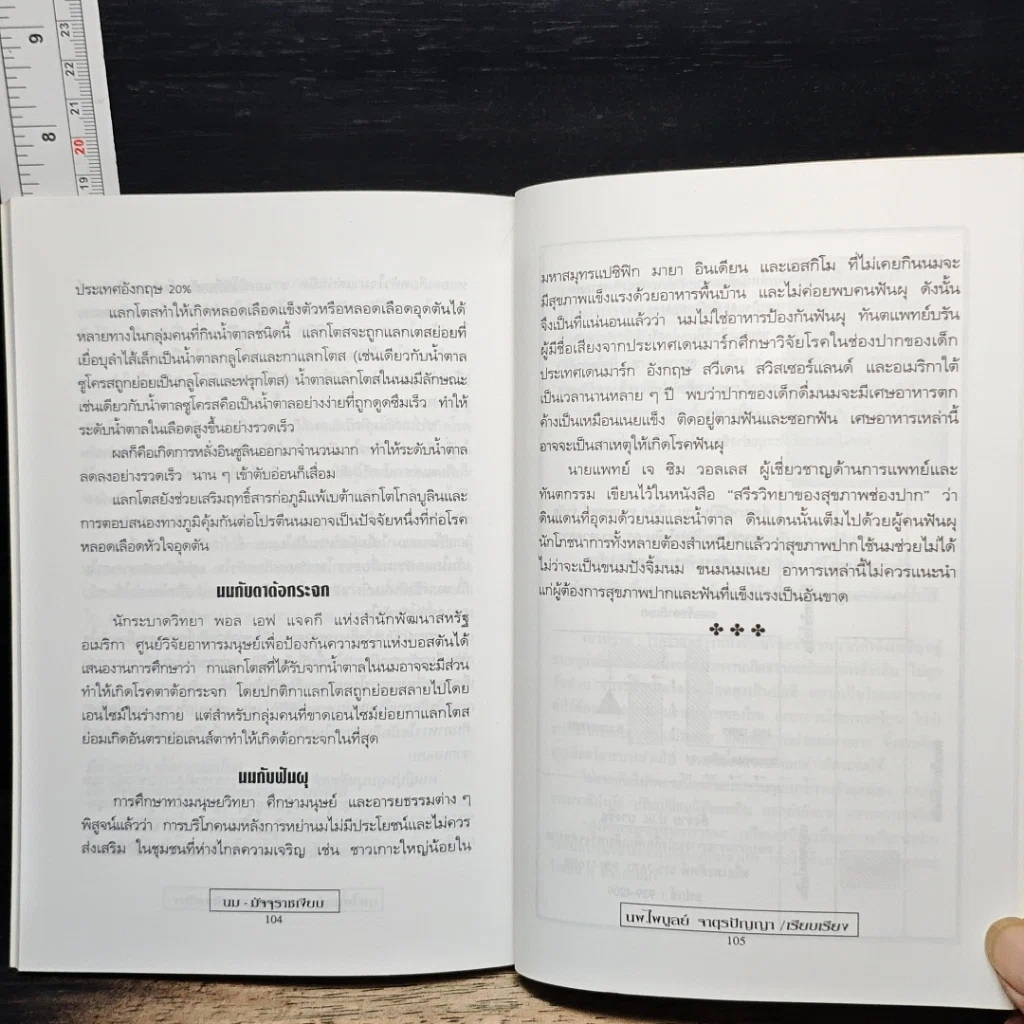 9
8
23
22
21
20
19
ประเทศอังกฤษ 20%
แลกโตสทำให้เกิดหลอดเลือดแข็งตัวหรือหลอดเลือดอุดตันได้
หลายทางในกลุ่มคนที่กินน้ำตาลชนิดนี้ แลกโตสจะถูกแลกเตสย่อยที่
เยื่อบุลำไส้เล็กเป็นน้ำตาลกลูโคสและกาแลกโตส (เช่นเดียวกับน้ำตาล
ซูโครสถูกย่อยเป็นกลูโคสและฟรุกโตส) น้ำตาลแลกโตสในนมมีลักษณะ
เช่นเดียวกับน้ำตาลซูโครสคือเป็นน้ำตาลอย่างง่ายที่ถูกดูดซึมเร็ว ทำให้
ระดับน้ำตาลในเลือดสูงขึ้นอย่างรวดเร็ว
ผลก็คือเกิดการหลั่งอินซูลินออกมาจำนวนมาก ทำให้ระดับน้ำตาล
ลดลงอย่างรวดเร็ว นาน ๆ เข้าตับอ่อนก็เสื่อม
แลกโตสยังช่วยเสริมฤทธิ์สารก่อภูมิแพ้เบต้าแลกโตโกลบูลินและ
การตอบสนองทางภูมิคุ้มกันต่อโปรตีนนมอาจเป็นปัจจัยหนึ่งที่ก่อโรค
หลอดเลือดหัวใจอุดตัน
นมกับตาต้อกระจก
นักระบาดวิทยา พอล เอฟ แจคกี แห่งสำนักพัฒนาสหรัฐ
อเมริกา ศูนย์วิจัยอาหารมนุษย์เพื่อป้องกันความชราแห่งบอสตันได้
เสนองานการศึกษาว่า กาแลกโตสที่ได้รับจากน้ำตาลในนมอาจจะมีส่วน
ทำให้เกิดโรคตาต้อกระจก โดยปกติกาแลกโตสถูกย่อยสลายไปโดย
เอนไซม์ในร่างกาย แต่สำหรับกลุ่มคนที่ขาดเอนไซม์ย่อยกาแลกโตส
ย่อมเกิดอันตรายต่อเลนส์ตาทำให้เกิดต้อกระจกในที่สุด
นมกับฟันผุ
การศึกษาทางมนุษยวิทยา ศึกษามนุษย์ และอารยธรรมต่าง ๆ
พิสูจน์แล้วว่า การบริโภคนมหลังการหย่านมไม่มีประโยชน์และไม่ควร
ส่งเสริม ในชุมชนที่ห่างไกลความเจริญ เช่น ชาวเกาะใหญ่น้อยใน
นม - มัจจุราชเงียบ
104
มหาสมุทรแปซิฟิก มายา อินเดียน และเอสกิโม ที่ไม่เคยกินนมจะ
มีสุขภาพแข็งแรงด้วยอาหารพื้นบ้าน และไม่ค่อยพบคนฟันผุ ดังนั้น
จึงเป็นที่แน่นอนแล้วว่า นมไม่ใช่อาหารป้องกันฟันผุ ทันตแพทย์บรัน
ผู้มีชื่อเสียงจากประเทศเดนมาร์กศึกษาวิจัยโรคในช่องปากของเด็ก
ประเทศเดนมาร์ก อังกฤษ สวีเดน สวิสเซอร์แลนด์ และอเมริกาใต้
เป็นเวลานานหลาย ๆ ปี พบว่าปากของเด็กดื่มนมจะมีเศษอาหารตก
ค้างเป็นเหมือนเนยแข็ง ติดอยู่ตามฟันและซอกฟัน เศษอาหารเหล่านี้
อาจจะเป็นสาเหตุให้เกิดโรคฟันผุ
นายแพทย์ เจ ซิม วอลเลส ผู้เชี่ยวชาญด้านการแพทย์และ
ทันตกรรม เขียนไว้ในหนังสือ “สรีรวิทยาของสุขภาพช่องปาก” ว่า
ดินแดนที่อุดมด้วยนมและน้ำตาล ดินแดนนั้นเต็มไปด้วยผู้คนฟันผุ
นักโภชนาการทั้งหลายต้องสำเหนียกแล้วว่าสุขภาพปากใช้นมช่วยไม่ได้
ไม่ว่าจะเป็นขนมปังจิ้มนม ขนมนมเนย อาหารเหล่านี้ไม่ควรแนะนำ
แก่ผู้ต้องการสุขภาพปากและฟันที่แข็งแรงเป็นอันขาด
นพ.ไพบูลย์ จาตุรปัญญา /เรียบเรียง
105